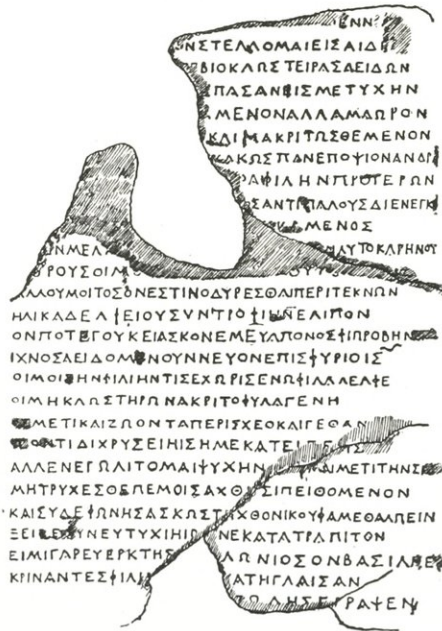 ΕΝΝ
ΝΣΤΕΛΛΟΜΑΙΕΙΣΑΙΔ
ΒΙΟΚΛΩΣΤΕΙΡΑΣΔΕΙΔΩΝ
ΠΑΣΑΝΕΙΣΜΕΤΥΧΗΝ
ΜΕΝΟΝΑΛΛΑΜΔΩΡΟΝ
ΚΑΙΜΑΚΡΙΤΩΣΘΕΜΕΝΟΝ
ΚΑΚΩΣΠΑΝΕΠΟΨΙΟΝΑΝΔΡΙ
ΑΦΙΛΗΝΠΡΟΤΕΡΩΝ
ΣΑΝΤΙΠΑΛΟΥΣΔΙΕΝΕΓΚ
ΜΕΝΟΣ
ΩΝΜΕΛΑ ΝΑΥΤΟΚΑΡΗΝΟΥ
ΡΟΥΣΟΙΜ
ΑΛΛΟΥΜΟΙΤΟΣΟΝΕΣΤΙΝΟΔΥΡΕΣΘΑΙΠΕΡΙΤΕΚΝΩΝ
ΗΛΙΚΑΔΕΛΦΕΙΟΥΣΥΝΤΡΟΦΙΗΝΕΛΙΠΟΝ
ΟΝΠΟΤΕΓΟΥΚΕΙΑΣΚΟΝΕΜΕΥΛΠΟΝΟΣΦΙΩΡΟΒΗΝ
ΙΧΝΟΣΑΕΙΔΟΜΕΝΟΥΝΝΕΥΟΝΕΠΙΣΦΥΡΙΟΙΣ
ΟΙΜΟΙΗΝΦΙΛΙΗΝΤΙΣΕΧΩΡΙΣΕΝΩΦΙΛΑΔΕΛΦΕ
ΟΙΜΗΚΛΩΣΤΗΡΩΝΑΚΡΙΤΟΦΥΛΑΓΕΝΗ
ΜΕΤΙΚΑΙΖΩΟΝΤΑΠΕΡΙΣΧΕΟΚΑΙΓΕΘΑΝ
ΟΝΤΙΔΙΧΡΥΣΕΙΗΙΣΗΜΕΚΑΤΕΙ
ΑΛΛΕΝΕΓΩΛΙΤΟΜΑΙΨΥΧΗΝ ΑΙΜΕΤΙΤΗΝΣ
ΜΗΤΡΥΧΕΣΘΕΠΕΜΟΙΣΑΧΘ ΣΙΠΕΙΘΟΜΕΝΟΝ
ΚΑΙΣΥΔΕΦΩΝΗΣΑΣΚΩΣΤ ΧΘΟΝΙΚΟΥΦΑΜΕΘΑΛΠΕΙΝ
ΞΕΙ ΥΝΕΥΤΥΧΙΗΙ ΝΕΚΑΤΑΤΡΑΠΙΤΟΝ
ΕΙΜΙΓΑΡΕΥΒΡΚΤΗΣ ΛΩΝΙΟΣΟΝΒΑΣΙΛΗΕ
ΚΡΙΝΑΝΤΕΣΦΙΛΙ ΑΤΗΓΛΑΙΣΑΝ
ΗΣΕΓΡΑΨΕΝ